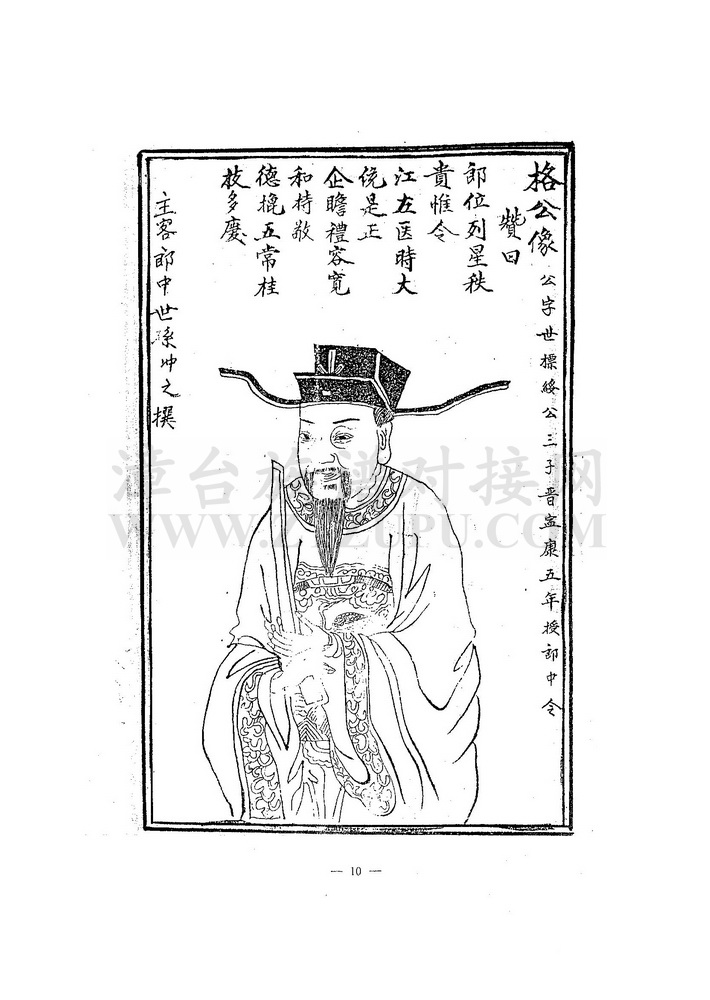 格公像
公字世標綏公三子晋寍康五年授郎中令
贊曰
郎位列星秩
貴惟令
江左匡時大
統是正
企瞻禮容寬
和持敬
德挹五常桂
枝多慶
主客郎中世孫冲之撰
漳台族谱对接网
WWW.ZTZUPU.COM
— 10 —